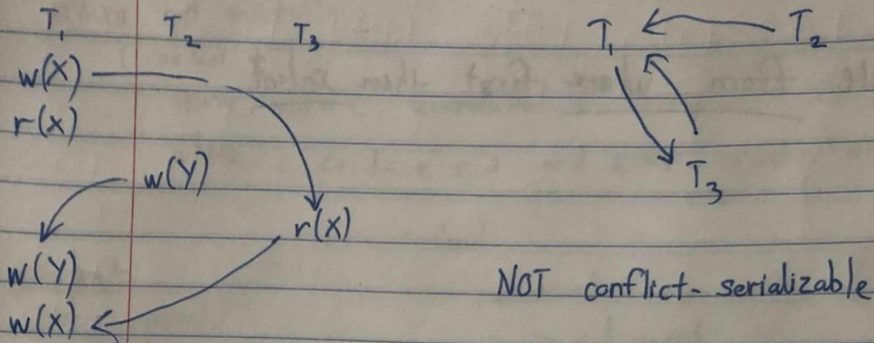 T₁ T₂ T₃
w(X)
r(X)
w(Y)
r(X)
w(Y)
w(X)
T₁ T₂
T₃
NOT conflict-serializable